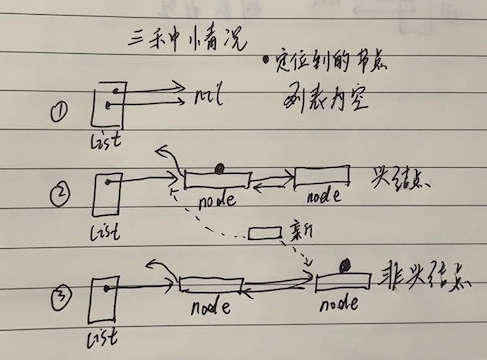 三禾中小情况
● 定位到的节点
① nil 列表为空
list
② 头结点
list node node
新
③ 非头结点
list node node